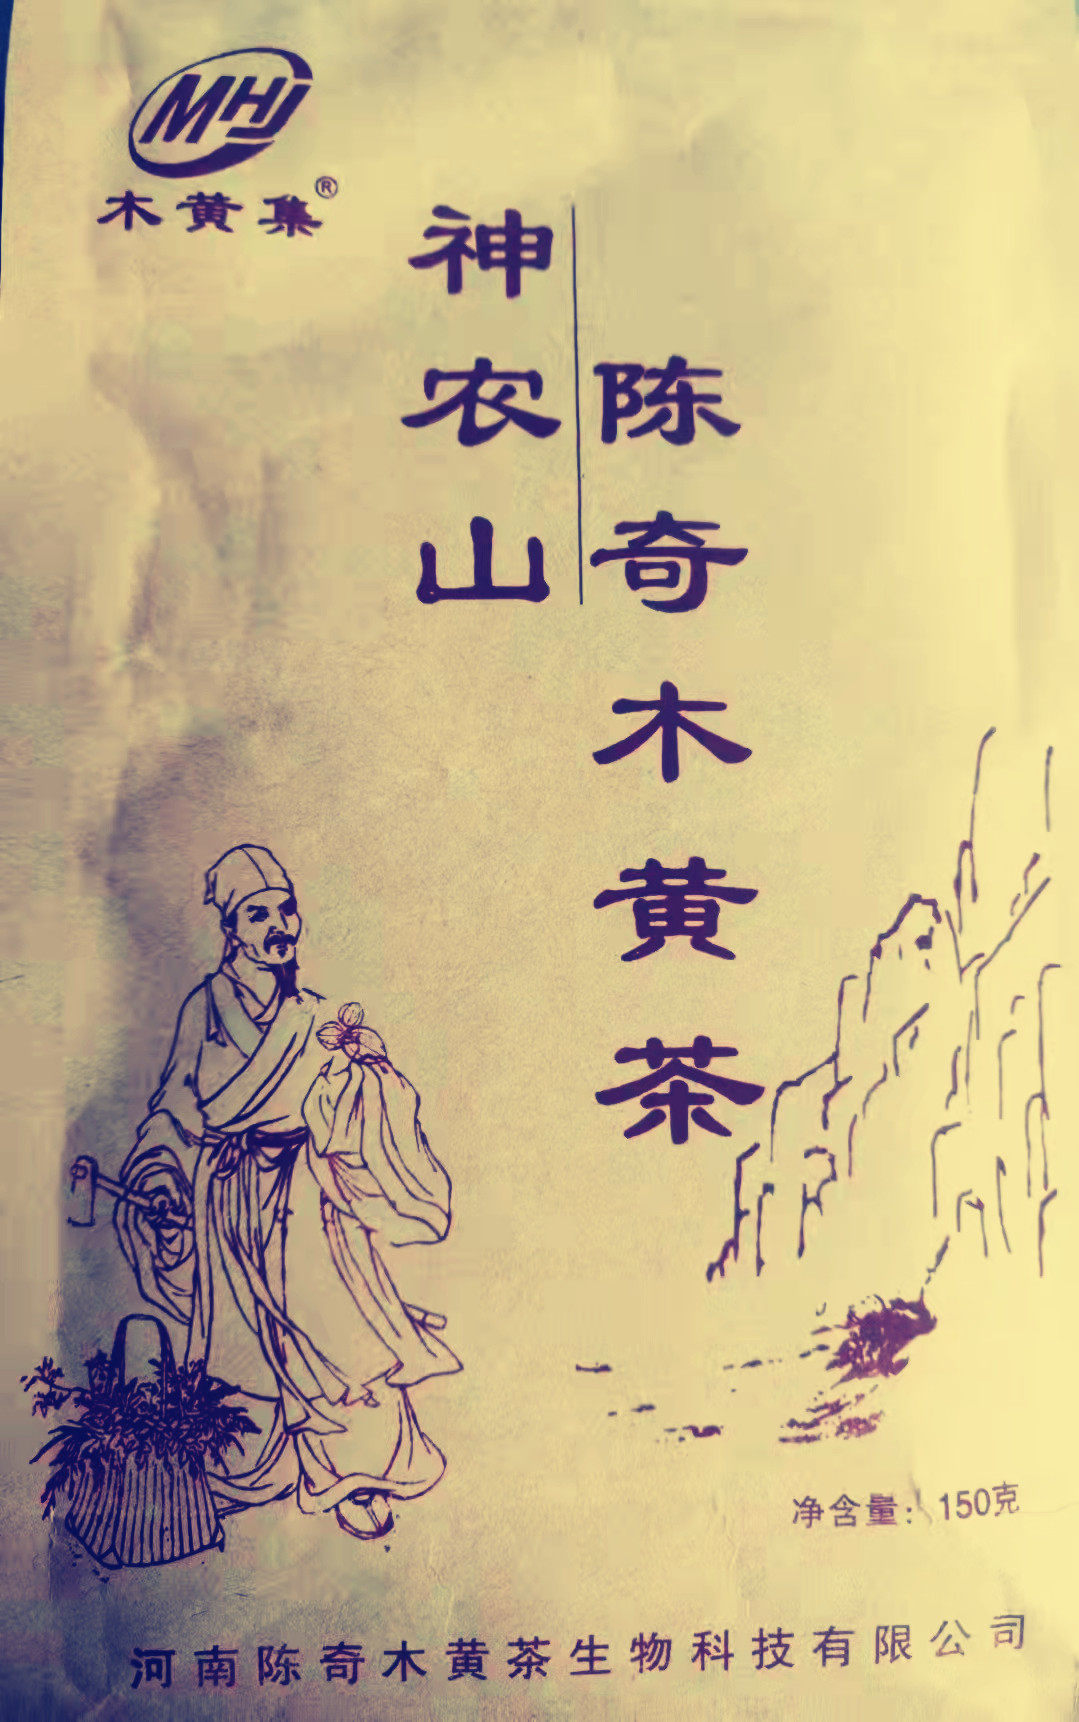 MHJ
木黄集®
神农山
陈奇木黄茶
净含量：150克
河南陈奇木黄茶生物科技有限公司